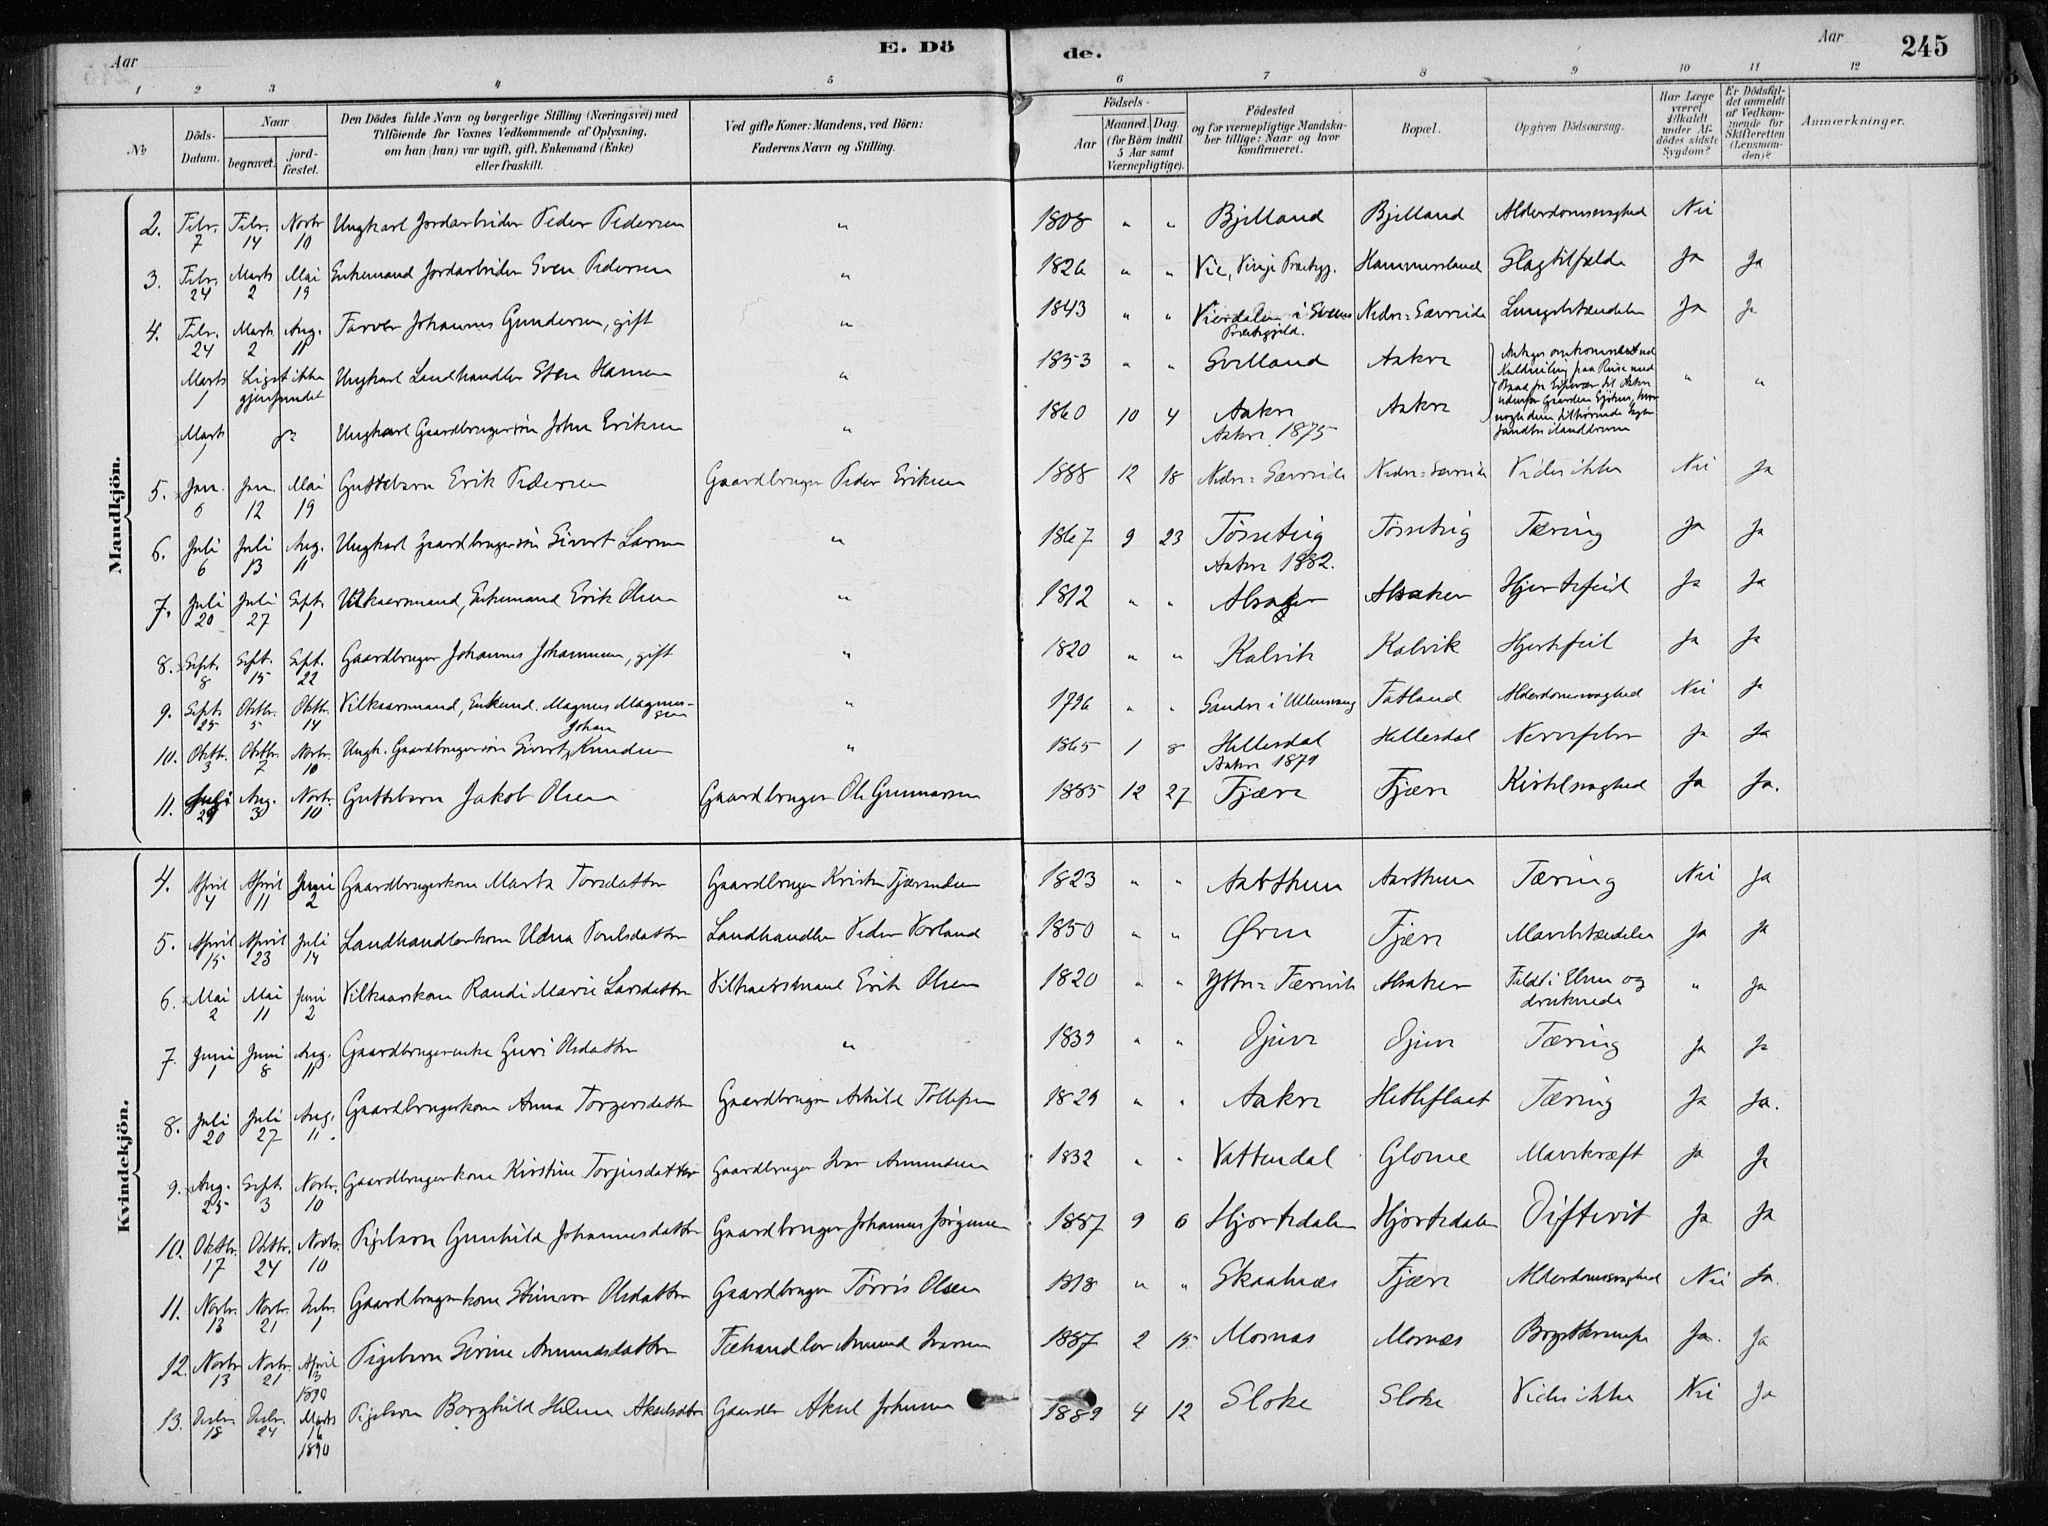 Aar E. Dö de. Aar 245
1 2 3 4 5 6 7 8 9 10 11 12
№ Döds-Datum. Naar begravet. jord-fæstet. Den Dödes fulde Navn og borgerlige Stilling (Næringsvei) med Tilföiende for Voxnes Vedkommende af Oplysning, om han (hun) var ugift, gift, Enkemand (Enke) eller fraskilt. Ved gifte Koner: Mandens, ved Börn: Faderens Navn og Stilling. Födsels- Aar Maaned. Dag. (for Börn indtil 5 Aar samt Værnepligtige). Födested og for værnepligtige Mandskaber tillige: Naar og hvor konfirmeret. Bopæl. Opgiven Dödsaarsag. Har Læge været tilkaldt under Afdödes sidste Sygdom? Er Dödsfaldet anmeldt af Vedkommende for Skifteretten (Lensmanden)? Anmærkninger.
Mandkjön.
2. Febr. 7 Febr. 14 Novbr 10 Ungkarl Jordarbeider Peder Pedersen " 1808 " " Bjelland Bjelland Alderdomssvaghed Nei
3. Febr. 24 Marts 2 Mai 19 Enkemand Jordarbeider Sven Pedersen " 1826 " " Vie, Vinje Præstgj. Hammersland Slagtilfælde Ja Ja
4. Febr. 24 Marts 2 Aug. 11 Farver Johannes Gundersen, gift " 1843 " " Vierdalen i Præstegjeld. Nedre-Sævreide Lungebetændelse Ja Ja
Marts 1 Liget ikke gjenfundet Ungkarl Landhandler Sten Hansen " 1853 " " Aakre " "
Marts 1 Ungkarl Gaardbrugersøn John Eriksen " 1860 10 4 Aakre Aakre 1875 Aakre
5. Jan. 6 Jan. 12 Mai 19 Guttebarn Erik Pedersen Gaardbruger Peder Eriksen 1888 12 18 Nedre-Sævreide Nedre-Sævreide Vides ikke Nei Ja
6. Juli 6 Juli 13 Aug. 11 Ungkarl Gaardbrugersøn Sivert Larsen " 1867 9 23 Tøsseteig Aakre 1882. Tøsseteig Tæring Ja Ja
7. Juli 20 Juli 27 Sept. 1 Vilkaarsmand, Enkemand Erik Olsen " 1812 " " Alsaker Alsaker Hjertefeil Ja Ja
8. Sept. 8 Sept. 15 Sept. 22 Gaardbruger Johannes Johannesen, gift " 1820 " " Kalvik Kalvik Hjertefeil Ja Ja
9. Sept. 25 Oktbr. 5 Oktbr. 14 Vilkaarsmand, Enkemd. Magnus Magnussen " 1796 " " Sandve i Ullensvang Tatland Alderdomssvaghed Nei Ja
10. Oktbr. 3 Oktbr. 7 Novbr. 10 Ungk. Gaardbrugersøn Sivert Johan Knudsen " 1865 1 8 Hellesdal Aakre 1879 Hellesdal Nervefeber Ja Ja
11. Juli 29 Aug. 3 Novbr. 10 Guttebarn Jakob Olsen Gaardbruger Ole Gunnarsen 1885 12 27 Fjære Fjære Kirtelsvaghed Ja Ja.
Kvindekjön.
4. April 4 April 11 Juni 2 Gaardbrugerkone Marta Torsdatter Gaardbruger Kristen 1823 " " Aarthun Aarthun Tæring Nei Ja
5. April 15 April 23 Juli 14 Landhandlerkone Udna Poulsdatter Landhandler Peder Vorland 1850 " " Ørne Fjære Mavebetændelse Ja Ja
6. Mai 2 Mai 11 Juni 2 Vilkaarskone Randi Marie Larsdatter Vilkaarsmand Erik Olsen 1820 " " Ytre-Tærvik Alsaker Faldt i Elven og druknede " Ja
7. Juni 1 Juni 8 Aug. 11 Gaardbrugerenke Guri Olsdatter " 1839 " " Djuve Djuve Tæring Ja Ja
8. Juli 20 Juli 27 Aug. 11. Gaardbrugerkone Anna Torgersdatter Gaardbruger Askild Tollefsen 1829 " " Aakre Hetleflaat Tæring Ja Ja.
9. Aug. 25 Sept. 3 Novbr. 10 Gaardbrugerkone Kirstine Torjusdatter Gaardbruger Ivar Amundsen 1832 " " Vattendal Glome Mavekræft Ja Ja
10. Oktbr. 17 Oktbr. 24 Novbr. 10 Pigebarn Gunhild Johannesdatter Gaardbruger Johannes Jørgensen 1887 9 6 Hjortedalen Hjortedalen Difterit Ja Ja
11. Novbr. 13 Novbr. 21 Decbr. 1 Gaardbrugerkone Olsdatter Gaardbruger Tørris Olsen 1818 " " Skaalnæs Fjære Alderdomssvaghed Nei Ja
12. Novbr. 13 Novbr. 21 April 3 1890 Pigebarn Serine Amundsdatter Fæhandler Amund Ivarsen 1887 2 15 Mosnæs Mosnæs Brystkrampe Ja. Ja
13. Decbr. 18 Decbr. 24 Marts 16 1890 Pigebarn Borghild Helene Akselsdatter Aksel Johnsen 1889 4 12 Sloke Sloke Vides ikke Nei Ja